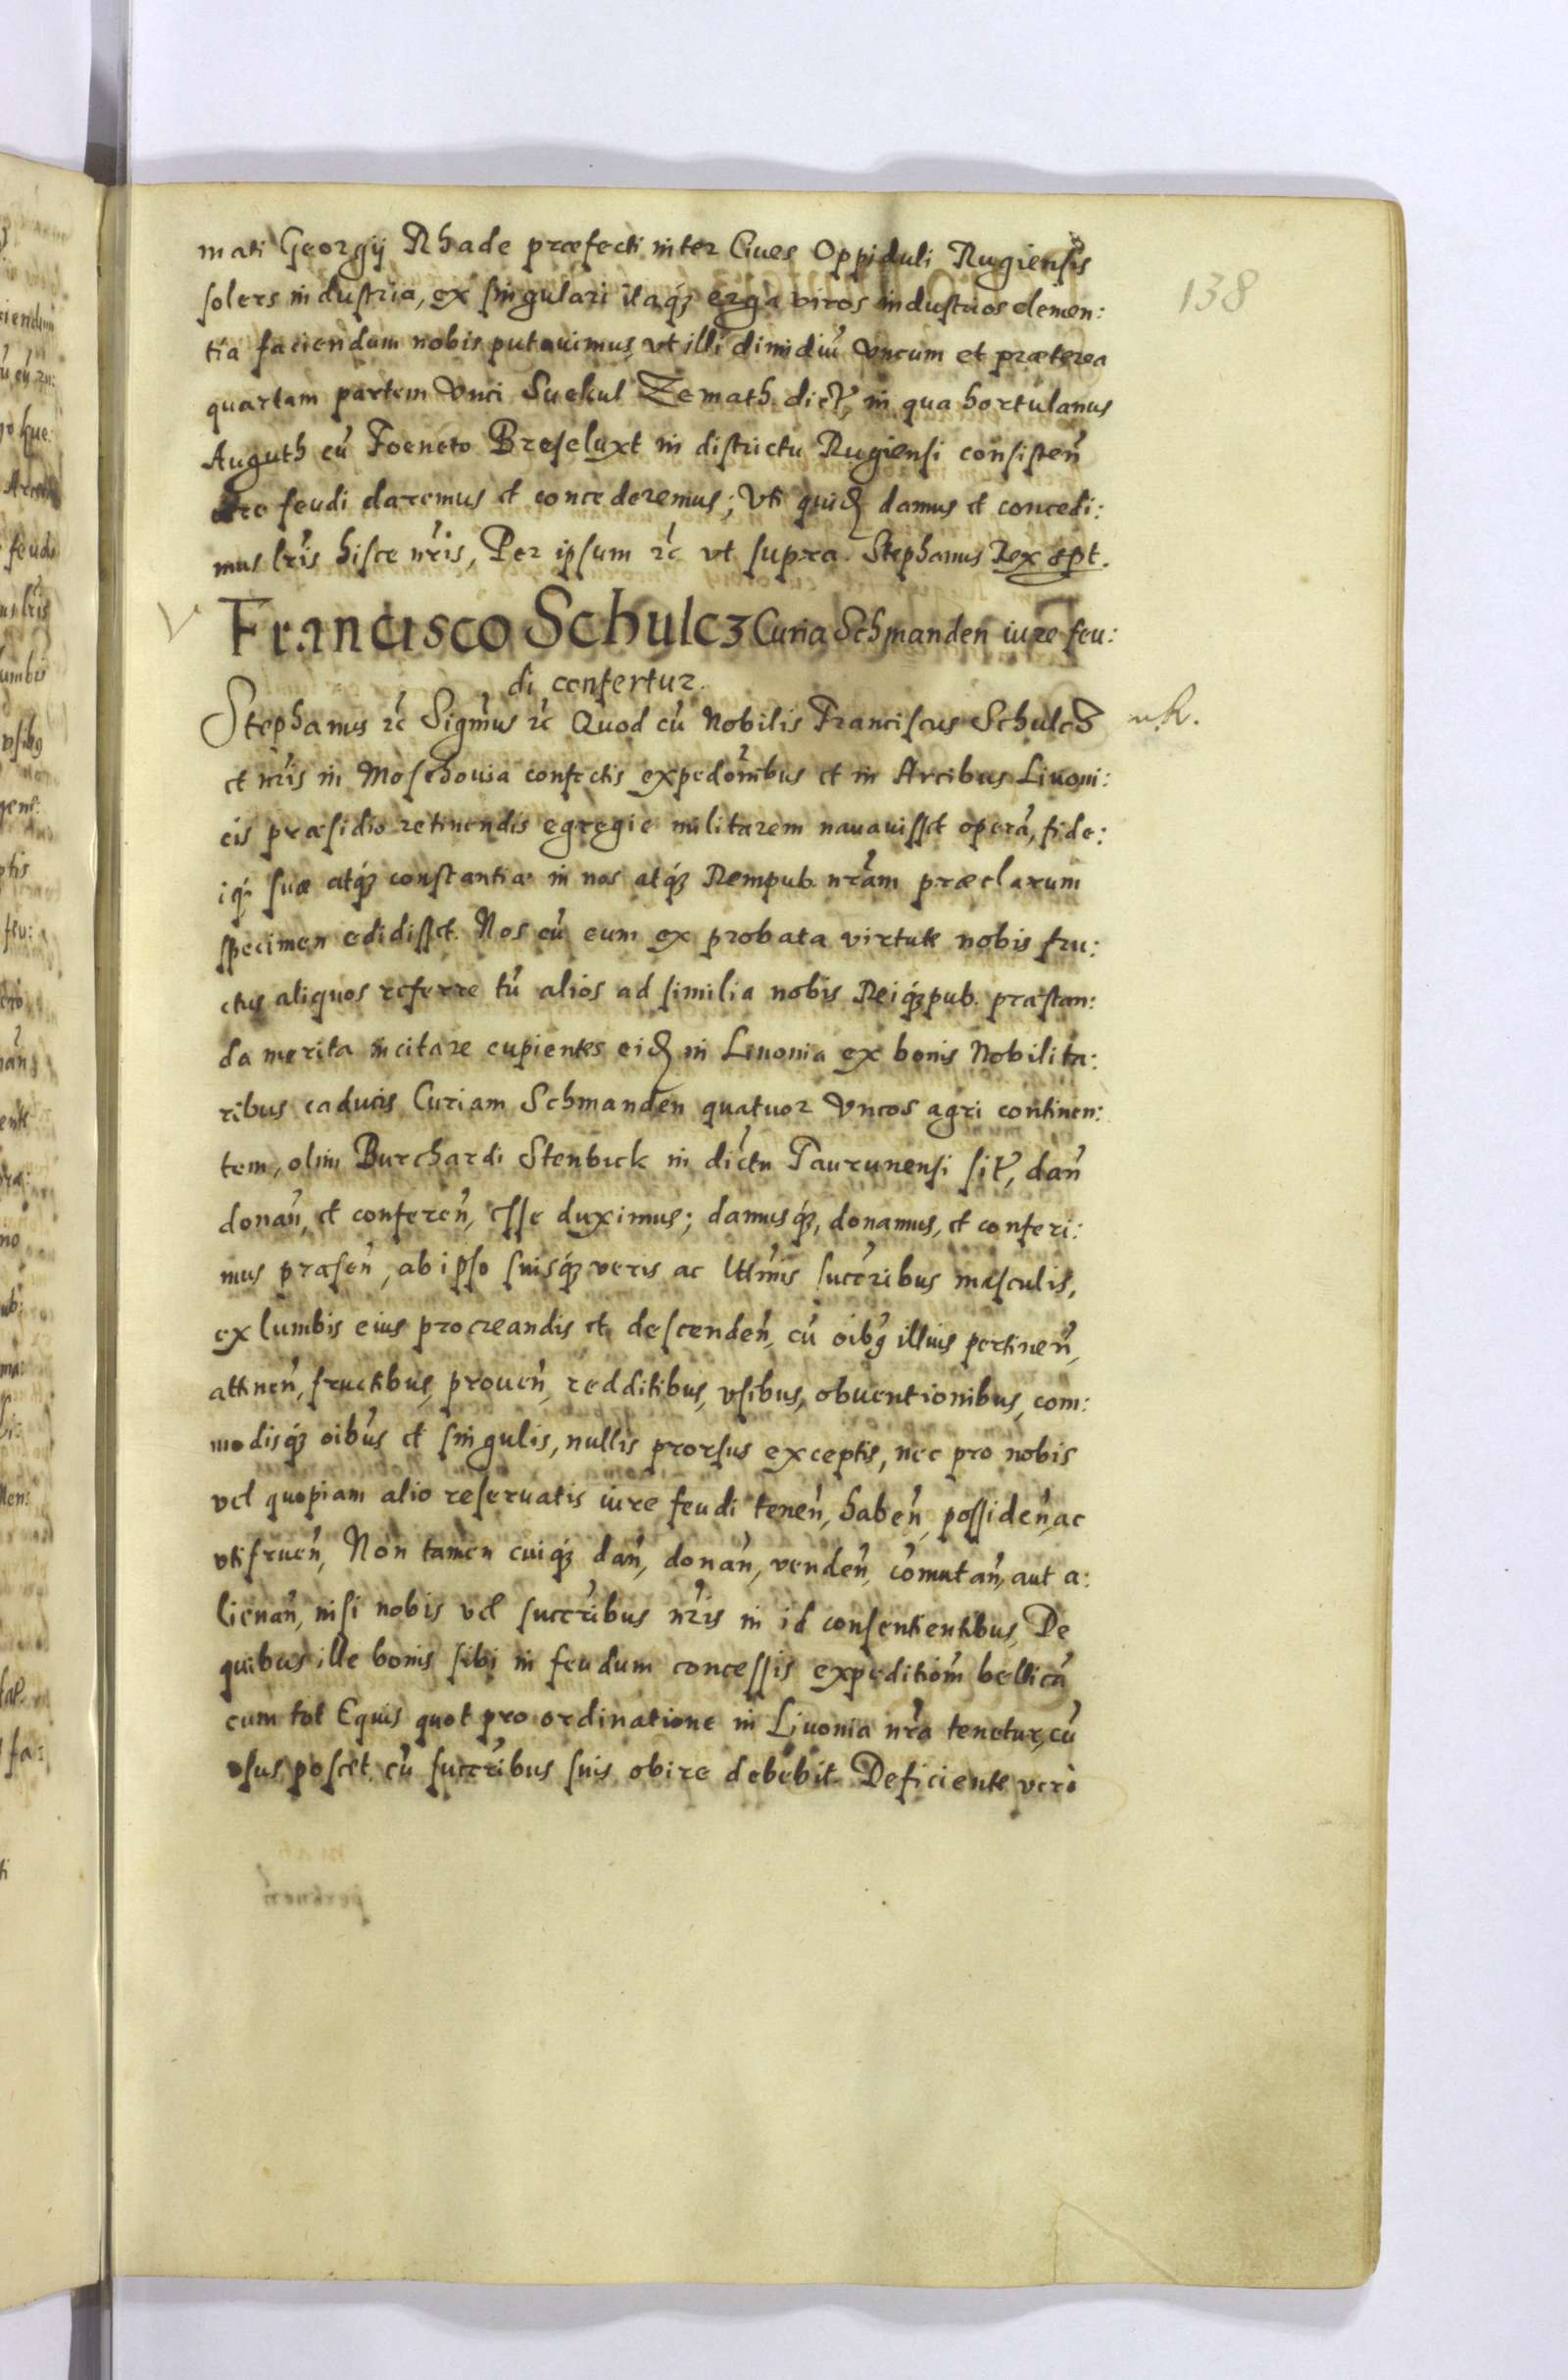 138
mati Georgij Rhade præfecti inter Ciues Oppiduli Rugiensis
solers industria, ex singulari itaq́ꝫ erga viros industrios clemen:
tia faciendum nobis putauimus, vt illi dimidiũ Vncum et præterea
quartam partem Vnci Suekul Zemath dict̃, in qua hortulanus
Auguth cũ Foeneto Breseluxt in districtu Rugiensi consisteñ
iure feudi daremus et concederemus; Vti quid̃ damus et concedi:
mus lr̃is hisce nr̃is, Per ipsum ⁊c̃ vt supra. Stephanus Rex spt.
Francisco Schulcz Curia Schmanden iure feu:
di confertur.
Stephanus ⁊c̃ Sigm̃us ⁊c̃ Quod cũ Nobilis Franciscus Schulcz
et nr̃is in Moschouia confectis expedõnibus et in Arcibus Liuoni:
cis præsidio retinendis egregie militarem nauauisset operã, fide:
iq́ suæ atq́ꝫ constantiæ in nos atq́ꝫ Rempub. nr̃am præclarum
specimen edidisset. Nos cũ eum ex probata virtute nobis fru:
ctus aliquos referre tũ alios ad similia nobis Reiq́ꝫpub. præstan:
da merita incitare cupientes eid̃ in Liuonia ex bonis Nobilita:
ribus caducis Curiam Schmanden quatuor Vncos agri continen:
tem, olim Burchardi Stenbick in dic̃tu Taurunensi sit̃, dañ
donañ, et confereñ, esse duximus; damusq́ꝫ, donamus, et conferi:
mus præseñ, ab ipso suisq́ꝫ veris ac lttm̃is succr̃ibus masculis,
ex lumbis eius procreandis et descendeñ, cũ oĩbꝯ illius pertineñ,
attineñ, fructibus, proueñ, redditibus, vsibus, obuentionibus, com:
modisq́ꝫ oĩbus et singulis, nullis prorsus exceptis, nec pro nobis
vel quopiam alio reseruatis iure feudi teneñ, habeñ, possideñ, ac
vtifrueñ, Non tamen cuiq́ꝫ dañ, donañ, vendeñ, cõmutañ, aut a:
lienañ, nisi nobis vel succr̃ibus nr̃is in id consentientibus, De
quibus ille bonis sibi in feudum concessis expeditiõm bellicã
cum tot Equis quot pro ordinatione in Liuonia nr̃a tenetur, cũ
vsus poscet cũ succr̃ibus suis obire debebit. Deficiente verò